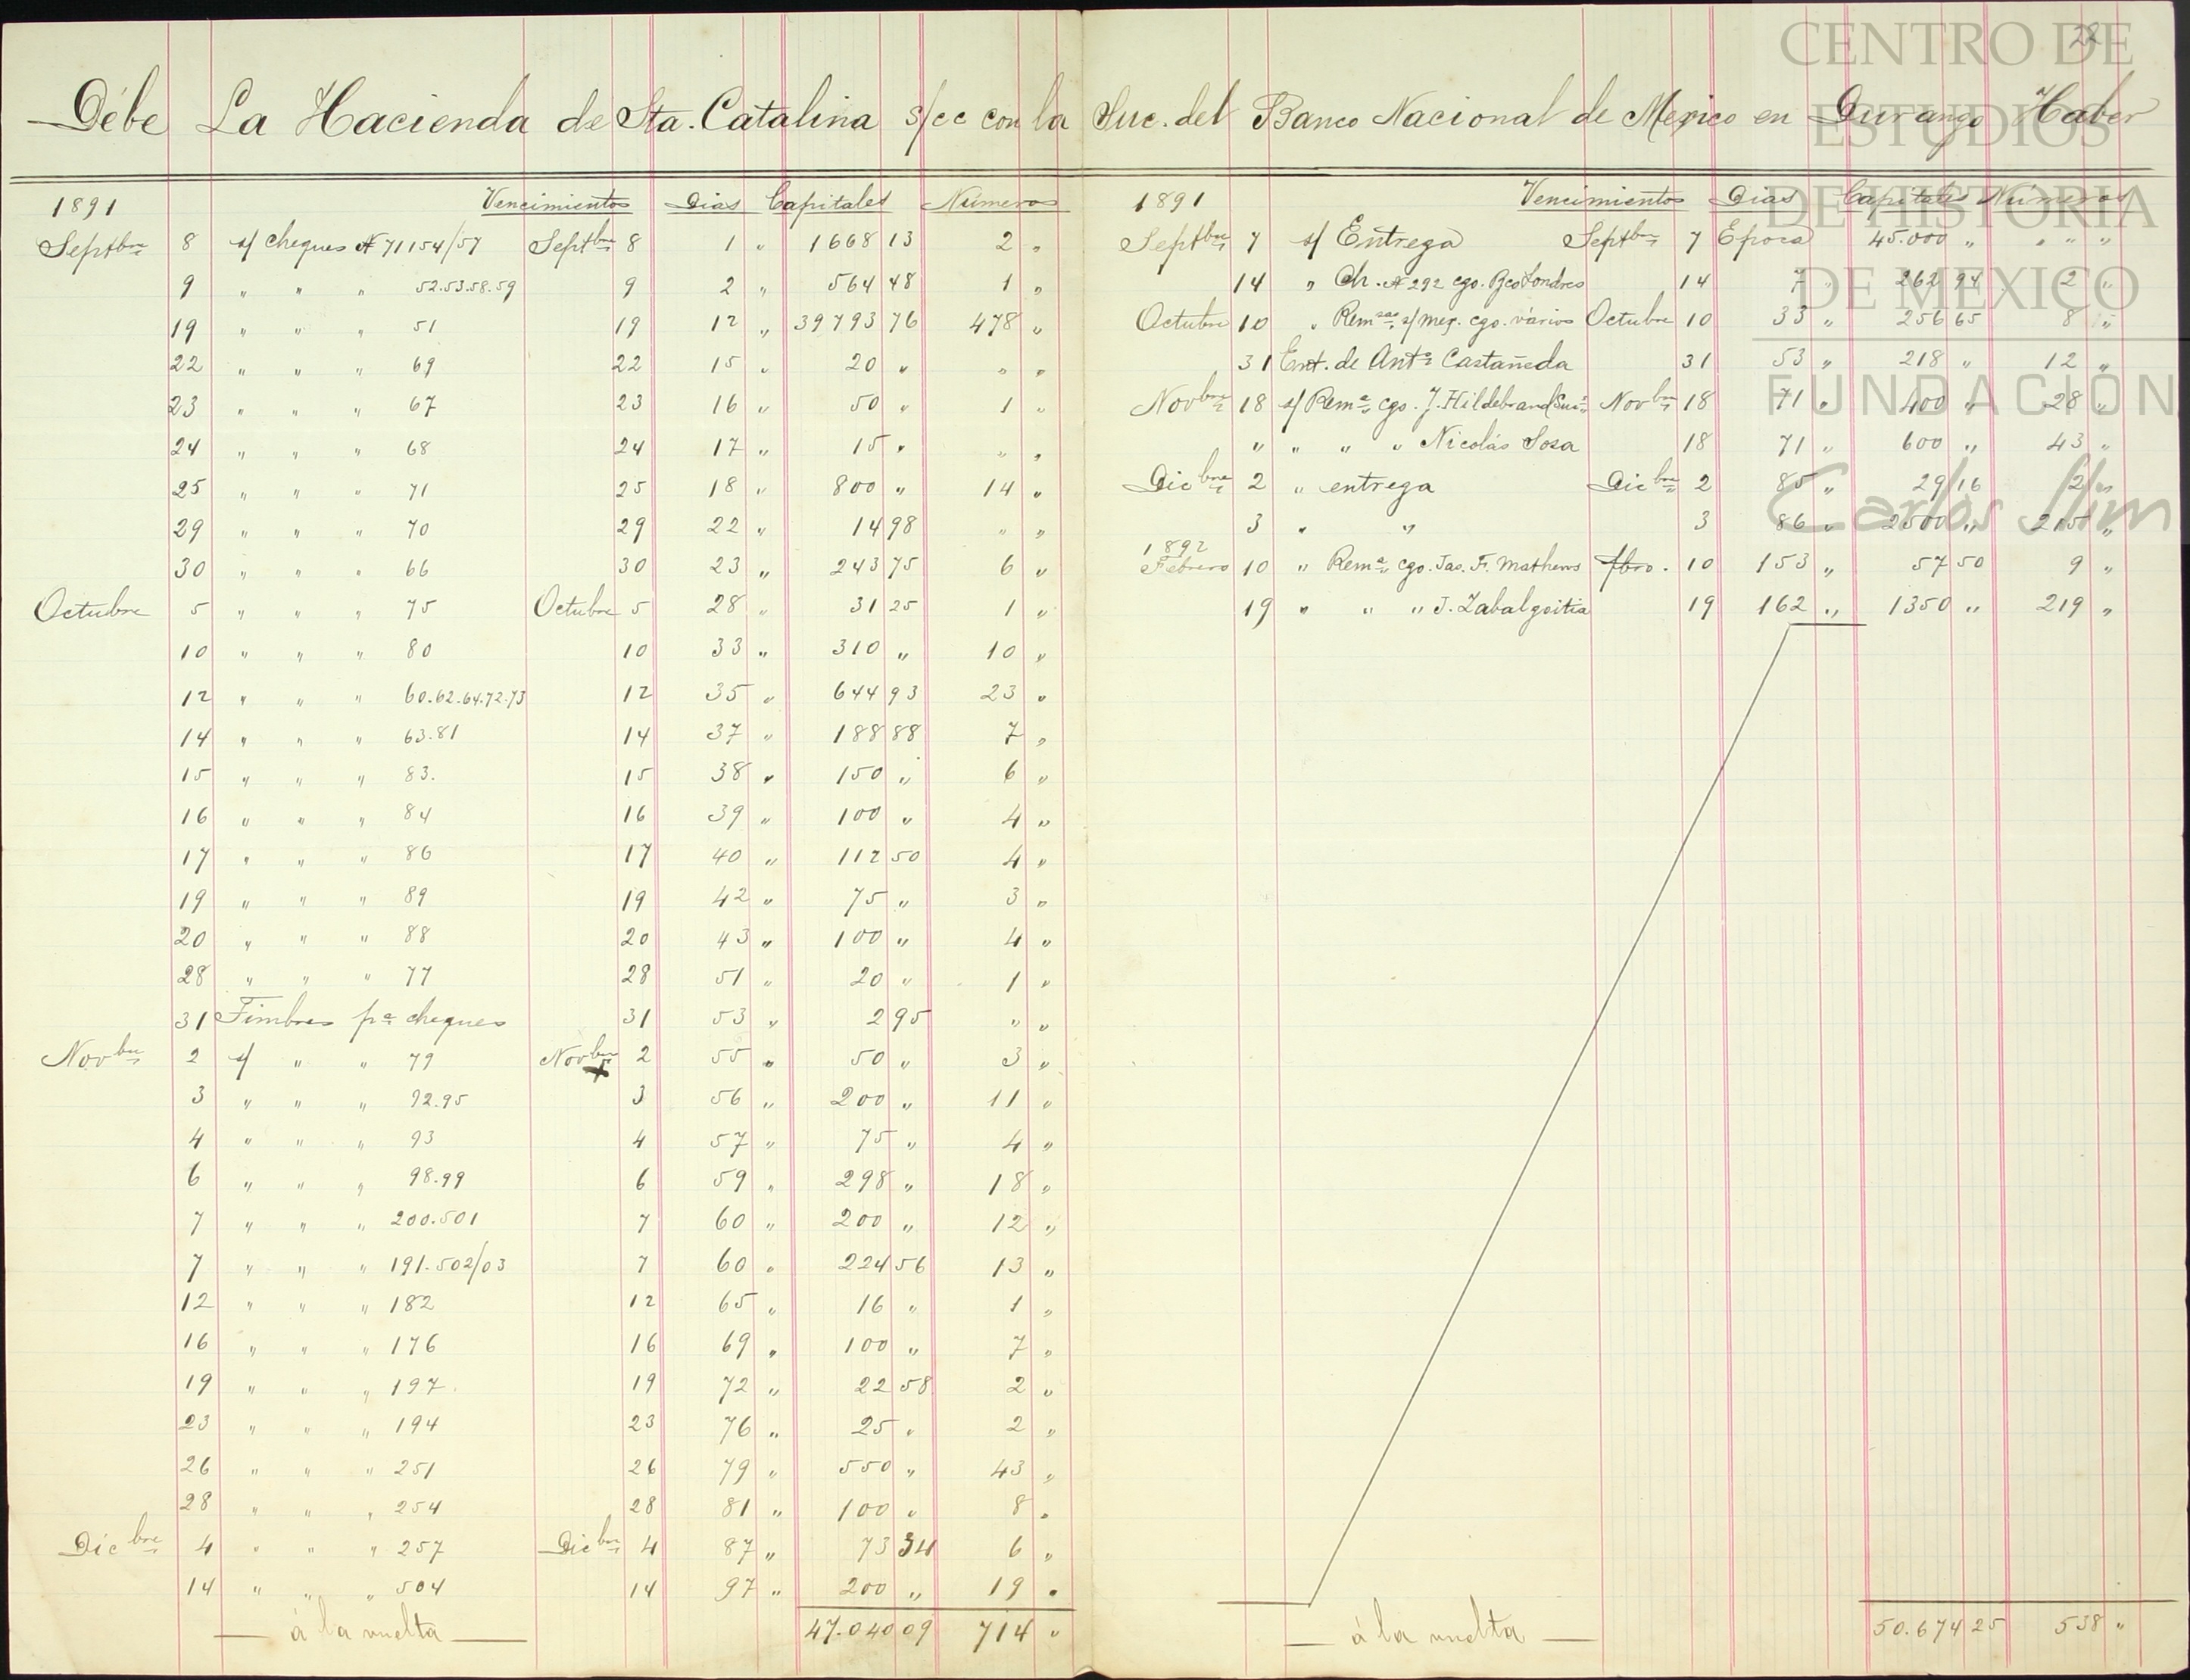 Débe La Hacienda de Sta. Catalina s/cc con la Suc. del Banco Nacional de Mexico en Durango Haber
1891 Vencimientos Dias Capitales Números
Septbre 8 s/ cheques № 71154/57 Septbre 8 1 " 1668 13 2 "
9 " " " 52.53.58.59 9 2 " 564 48 1 "
19 " " " 51 19 12 " 39793 76 478 "
22 " " " 69 22 15 " 20 " " "
23 " " " 67 23 16 " 50 " 1 "
24 " " " 68 24 17 " 15 " " "
25 " " " 71 25 18 " 800 " 14 "
29 " " " 70 29 22 " 14 98 " "
30 " " " 66 30 23 " 243 75 6 "
Octubre 5 " " " 75 Octubre 5 28 " 31 25 1 "
10 " " " 80 10 33 " 310 " 10 "
12 " " " 60.62.64.72.73 12 35 " 644 93 23 "
14 " " " 63.81 14 37 " 188 88 7 "
15 " " " 83. 15 38 " 150 " 6 "
16 " " " 84 16 39 " 100 " 4 "
17 " " " 86 17 40 " 112 50 4 "
19 " " " 89 19 42 " 75 " 3 "
20 " " " 88 20 43 " 100 " 4 "
28 " " " 77 28 51 " 20 " 1 "
31 Timbres pa cheques 31 53 " 2 95 " "
Novbre 2 s/ " " 79 Novbre 2 55 " 50 " 3 "
3 " " " 92.95 3 56 " 200 " 11 "
4 " " " 93 4 57 " 75 " 4 "
6 " " " 98.99 6 59 " 298 " 18 "
7 " " " 200.501 7 60 " 200 " 12 "
7 " " " 191.502/03 7 60 " 224 56 13 "
12 " " " 182 12 65 " 16 " 1 "
16 " " " 176 16 69 " 100 " 7 "
19 " " " 197. 19 72 " 22 58 2 "
23 " " " 194 23 76 " 25 " 2 "
26 " " " 251 26 79 " 550 " 43 "
28 " " " 254 28 81 " 100 " 8 "
Dicbre 4 " " " 257 Dicbre 4 87 " 73 34 6 "
14 " " " 504 14 97 " 200 " 19 "
á la vuelta 47.040 09 714 "
1891 Vencimientos Dias Capitales Números
Septbre 7 s/ Entrega Septbre 7 Epoca 45.000 " " " "
14 " Ch. № 292 cgo. Bco Londres 14 7 " 262 94 2 "
Octubre 10 " Remsas s/ Mex. cgo. vários Octubre 10 33 " 256 65 8 "
31 Ent. de Anto Castañeda 31 53 " 218 " 12 "
Novbre 18 s/ Rema cgo. J. Hildebrand Novbre 18 71 " 400 " 28 "
" " " " Nicolás Sosa 18 71 " 600 " 43 "
Dicbre 2 " entrega Dicbre 2 85 " 29 16 2 "
3 " " 3 86 " 2500 " 215 "
1892
Febrero 10 " Rema cgo. Jas. F. Mathews fbro. 10 153 " 57 50 9 "
19 " " " J. Zabalgoitia 19 162 " 1350 " 219 "
á la vuelta 50.674 25 538 "
CENTRO DE
ESTUDIOS
DE HISTORIA
DE MEXICO
FUNDACIÓN
Carlos Slim